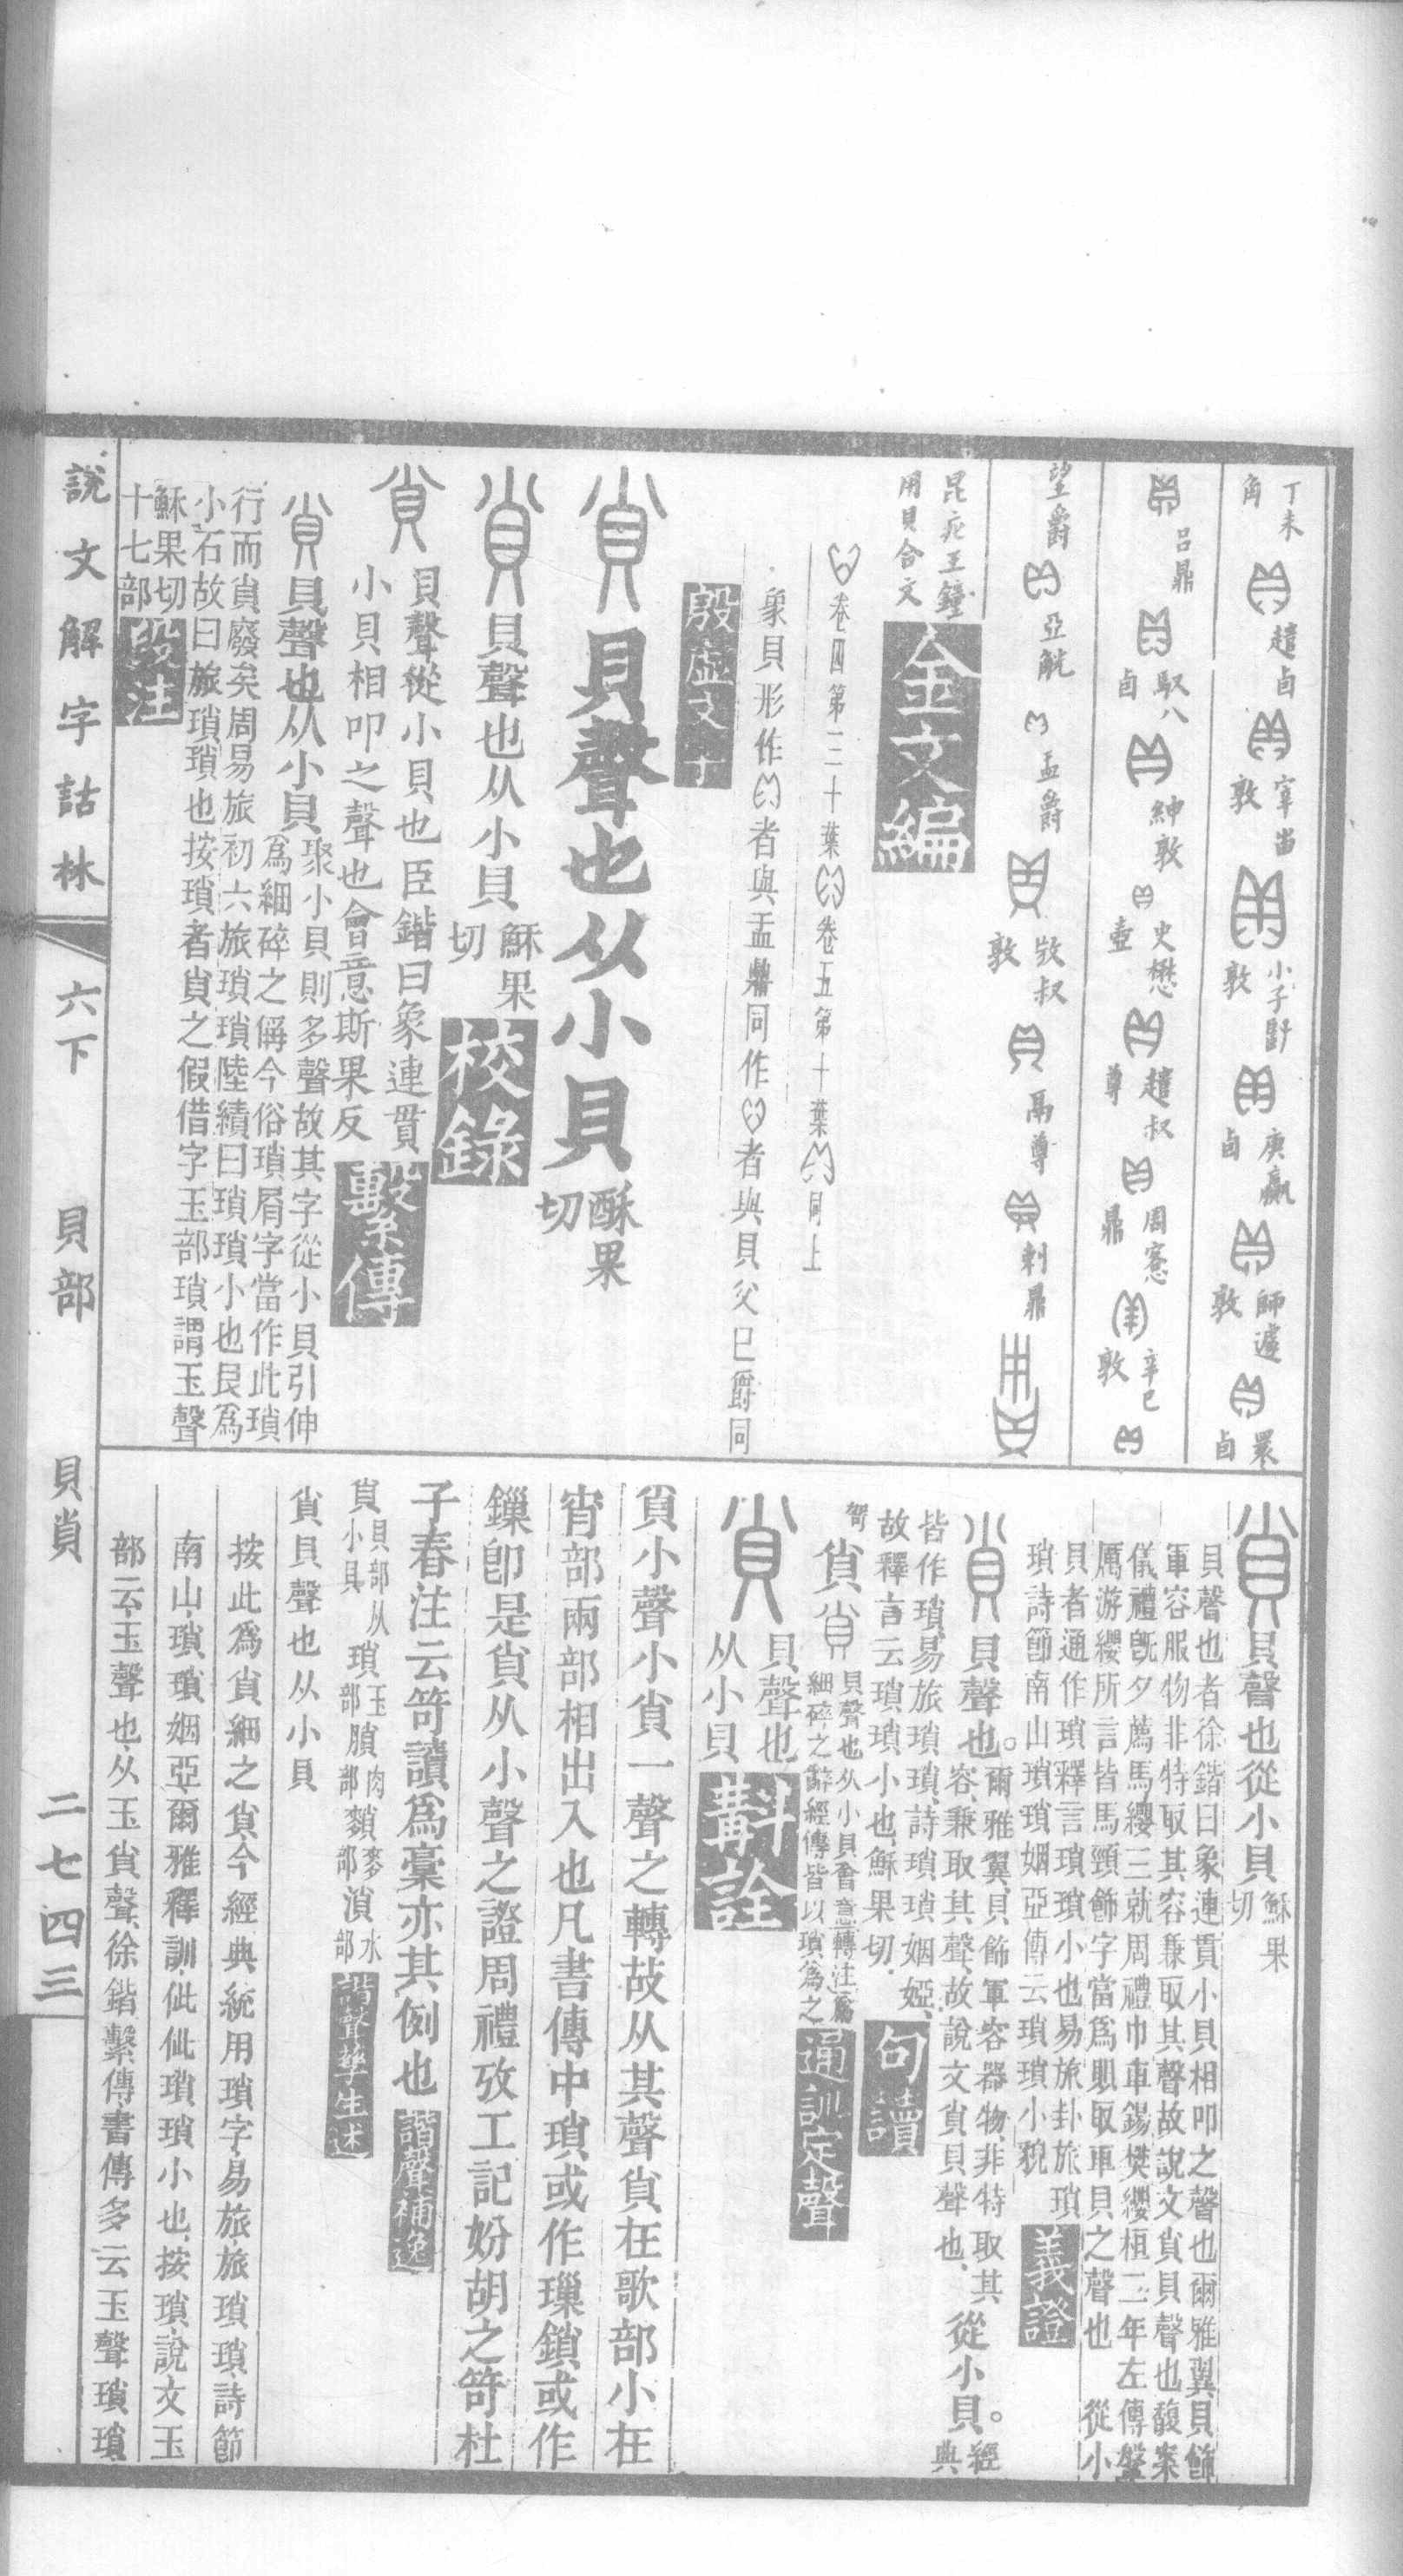 丁未
角
趞卣
宰甾
敦
小子
敦
庚嬴
卣
師遽
敦
睘
卣
呂鼎
馭八
卣
紳敦
史懋
壺
趞叔
尊
周窻
鼎
辛巳
敦
望爵
亞觥
盂爵
敔叔
敦
禼尊
剌鼎
昆疕王鐘
用貝合文
金文編
卷四第二十葉 卷五第十葉 同上
象貝形作 者與盂鼎同作 者與貝父已爵同
殷虛文字
貝聲也从小貝酥果
切
貝聲也从小貝穌果
切
校錄
貝聲從小貝也臣鍇曰象連貫
小貝相叩之聲也會意斯果反
繫傳
貝聲也从小貝聚小貝則多聲故其字從小貝引伸
爲細碎之偁今俗瑣屑字當作此瑣
行而𧴪廢矣周易旅初六旅瑣瑣陸績曰瑣瑣小也艮爲
小石故曰旅瑣瑣也按瑣者𧴪之假借字玉部瑣謂玉聲
穌果切
十七部
段注
貝聲也從小貝穌果
切
貝聲也者徐鍇曰象連貫小貝相叩之聲也爾雅翼貝飾
軍容服物非特取其容兼取其聲故說文𧴪貝聲也馥案
儀禮旣夕薦馬纓三就周禮巾車錫樊纓桓二年左傳鞶
厲游纓所言皆馬頸飾字當爲賏取車貝之聲也 從小
貝者通作瑣釋言瑣瑣小也易旅卦旅瑣
瑣詩節南山瑣瑣姻亞傳云瑣瑣小貌
義證
貝聲也。爾雅翼貝飾軍容器物非特取其
容兼取其聲故說文𧴪貝聲也 從小貝。經
典
皆作瑣易旅瑣瑣詩瑣瑣姻婭
故釋言云瑣瑣小也穌果切
句讀
𧴪
貝聲也从小貝會意轉注爲
細碎之辭經傳皆以瑣爲之
通訓定聲
貝聲也
从小貝
斠詮
𧴪小聲小𧴪一聲之轉故从其聲𧴪在歌部小在
宵部兩部相出入也凡書傳中瑣或作璅鎖或作
鏁卽是𧴪从小聲之證周禮攷工記妢胡之笴杜
子春注云笴讀爲稾亦其例也
諧聲補逸
𧴪貝部从
小貝
瑣玉
部
䐝肉
部
䵀麥
部
溑水
部
諧聲孳生述
𧴪貝聲也从小貝
按此爲𧴪細之𧴪今經典統用瑣字易旅旅瑣瑣詩節
南山瑣瑣姻亞爾雅釋訓佌佌瑣瑣小也按瑣說文玉
部云玉聲也从玉𧴪聲徐鍇繫傳書傳多云玉聲瑣瑣
說文解字詁林
六下
貝部
貝𧴪
二七四三